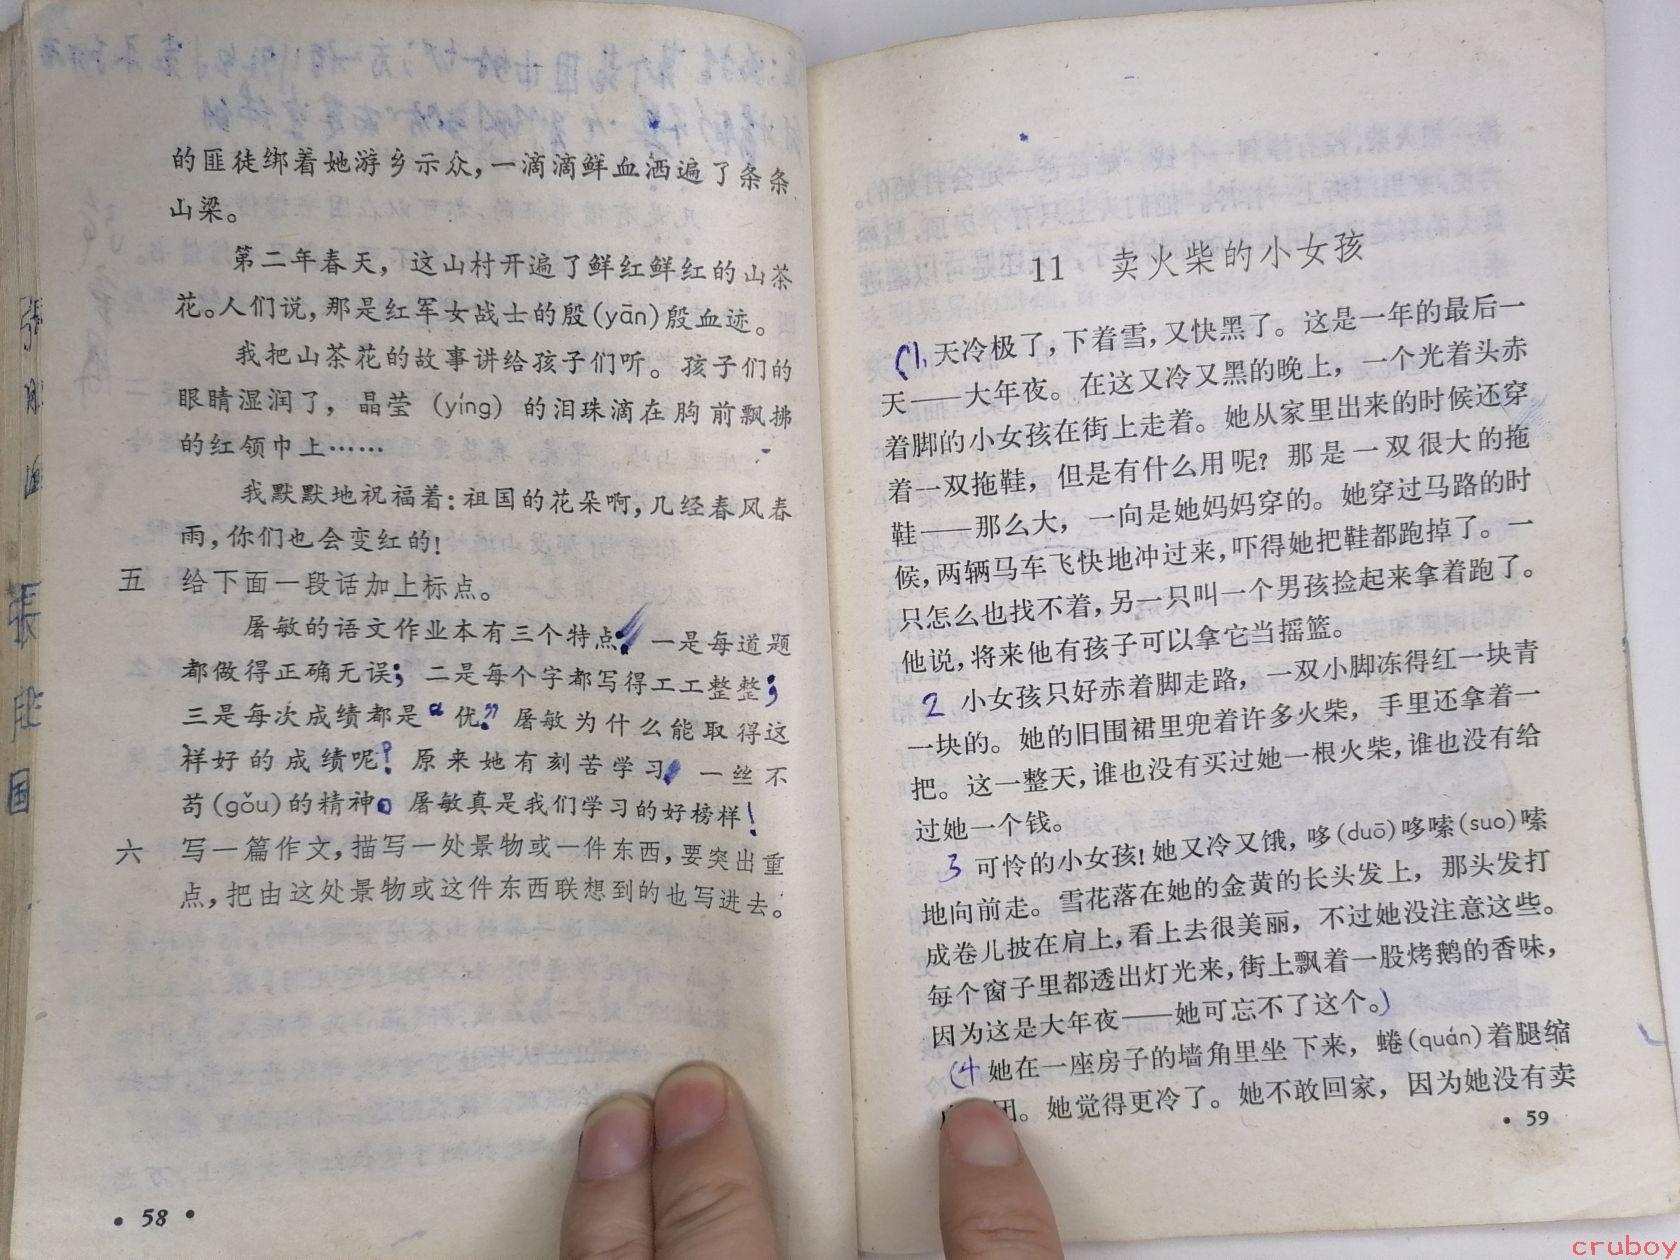 的匪徒绑着她游乡示众，一滴滴鲜血洒遍了条条
山梁。
第二年春天，这山村开遍了鲜红鲜红的山茶
花。人们说，那是红军女战士的殷(yān)殷血迹。
我把山茶花的故事讲给孩子们听。孩子们的
眼睛湿润了，晶莹(yíng)的泪珠滴在胸前飘拂
的红领巾上……
我默默地祝福着：祖国的花朵啊，几经春风春
雨，你们也会变红的！
五 给下面一段话加上标点。
屠敏的语文作业本有三个特点 一是每道题
都做得正确无误；二是每个字都写得工工整整；
三是每次成绩都是“优”。屠敏为什么能取得这
样好的成绩呢？原来她有刻苦学习 一丝不
苟(gǒu)的精神。屠敏真是我们学习的好榜样！
六 写一篇作文，描写一处景物或一件东西，要突出重
点，把由这处景物或这件东西联想到的也写进去。
• 58 •
張
張
国
11 卖火柴的小女孩
(1 天冷极了，下着雪，又快黑了。这是一年的最后一
天——大年夜。在这又冷又黑的晚上，一个光着头赤
着脚的小女孩在街上走着。她从家里出来的时候还穿
着一双拖鞋，但是有什么用呢？那是一双很大的拖
鞋——那么大，一向是她妈妈穿的。她穿过马路的时
候，两辆马车飞快地冲过来，吓得她把鞋都跑掉了。一
只怎么也找不着，另一只叫一个男孩捡起来拿着跑了。
他说，将来他有孩子可以拿它当摇篮。
2 小女孩只好赤着脚走路，一双小脚冻得红一块青
一块的。她的旧围裙里兜着许多火柴，手里还拿着一
把。这一整天，谁也没有买过她一根火柴，谁也没有给
过她一个钱。
3 可怜的小女孩！她又冷又饿，哆(duō)哆嗦(suo)嗦
地向前走。雪花落在她的金黄的长头发上，那头发打
成卷儿披在肩上，看上去很美丽，不过她没注意这些。
每个窗子里都透出灯光来，街上飘着一股烤鹅的香味，
因为这是大年夜——她可忘不了这个。)
(4 她在一座房子的墙角里坐下来，蜷(quán)着腿缩
团。她觉得更冷了。她不敢回家，因为她没有卖
• 59
cruboy